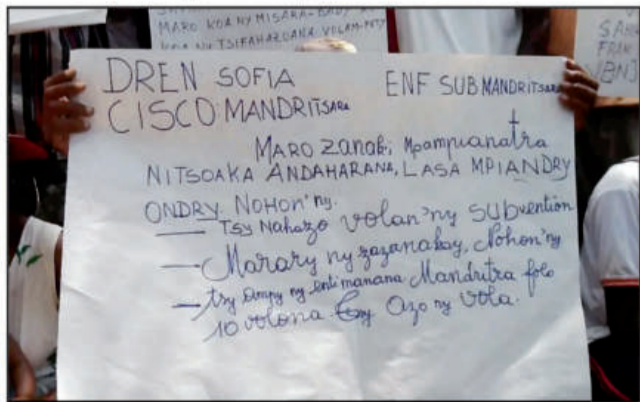 MARO KOA NY MISARA-BADY
KOA NY TSIFAHAZOANA VOLAM-
SAH
FRAN
DREN SOFIA
ENF SUB MANDRITSARA
CISCO MANDRITSARA
MARO zanak; Mpampianatra
NITSOAKA ANDAHARANA, LASA MPIANDRY
ONDRY. NOHON'ny.
— Tsy Nahazo volan'ny SUBvention
— Marary ny zazanakay, Nohon'ny
— try ny enti manana Mandritra folo
10 volona Azo ny vola.